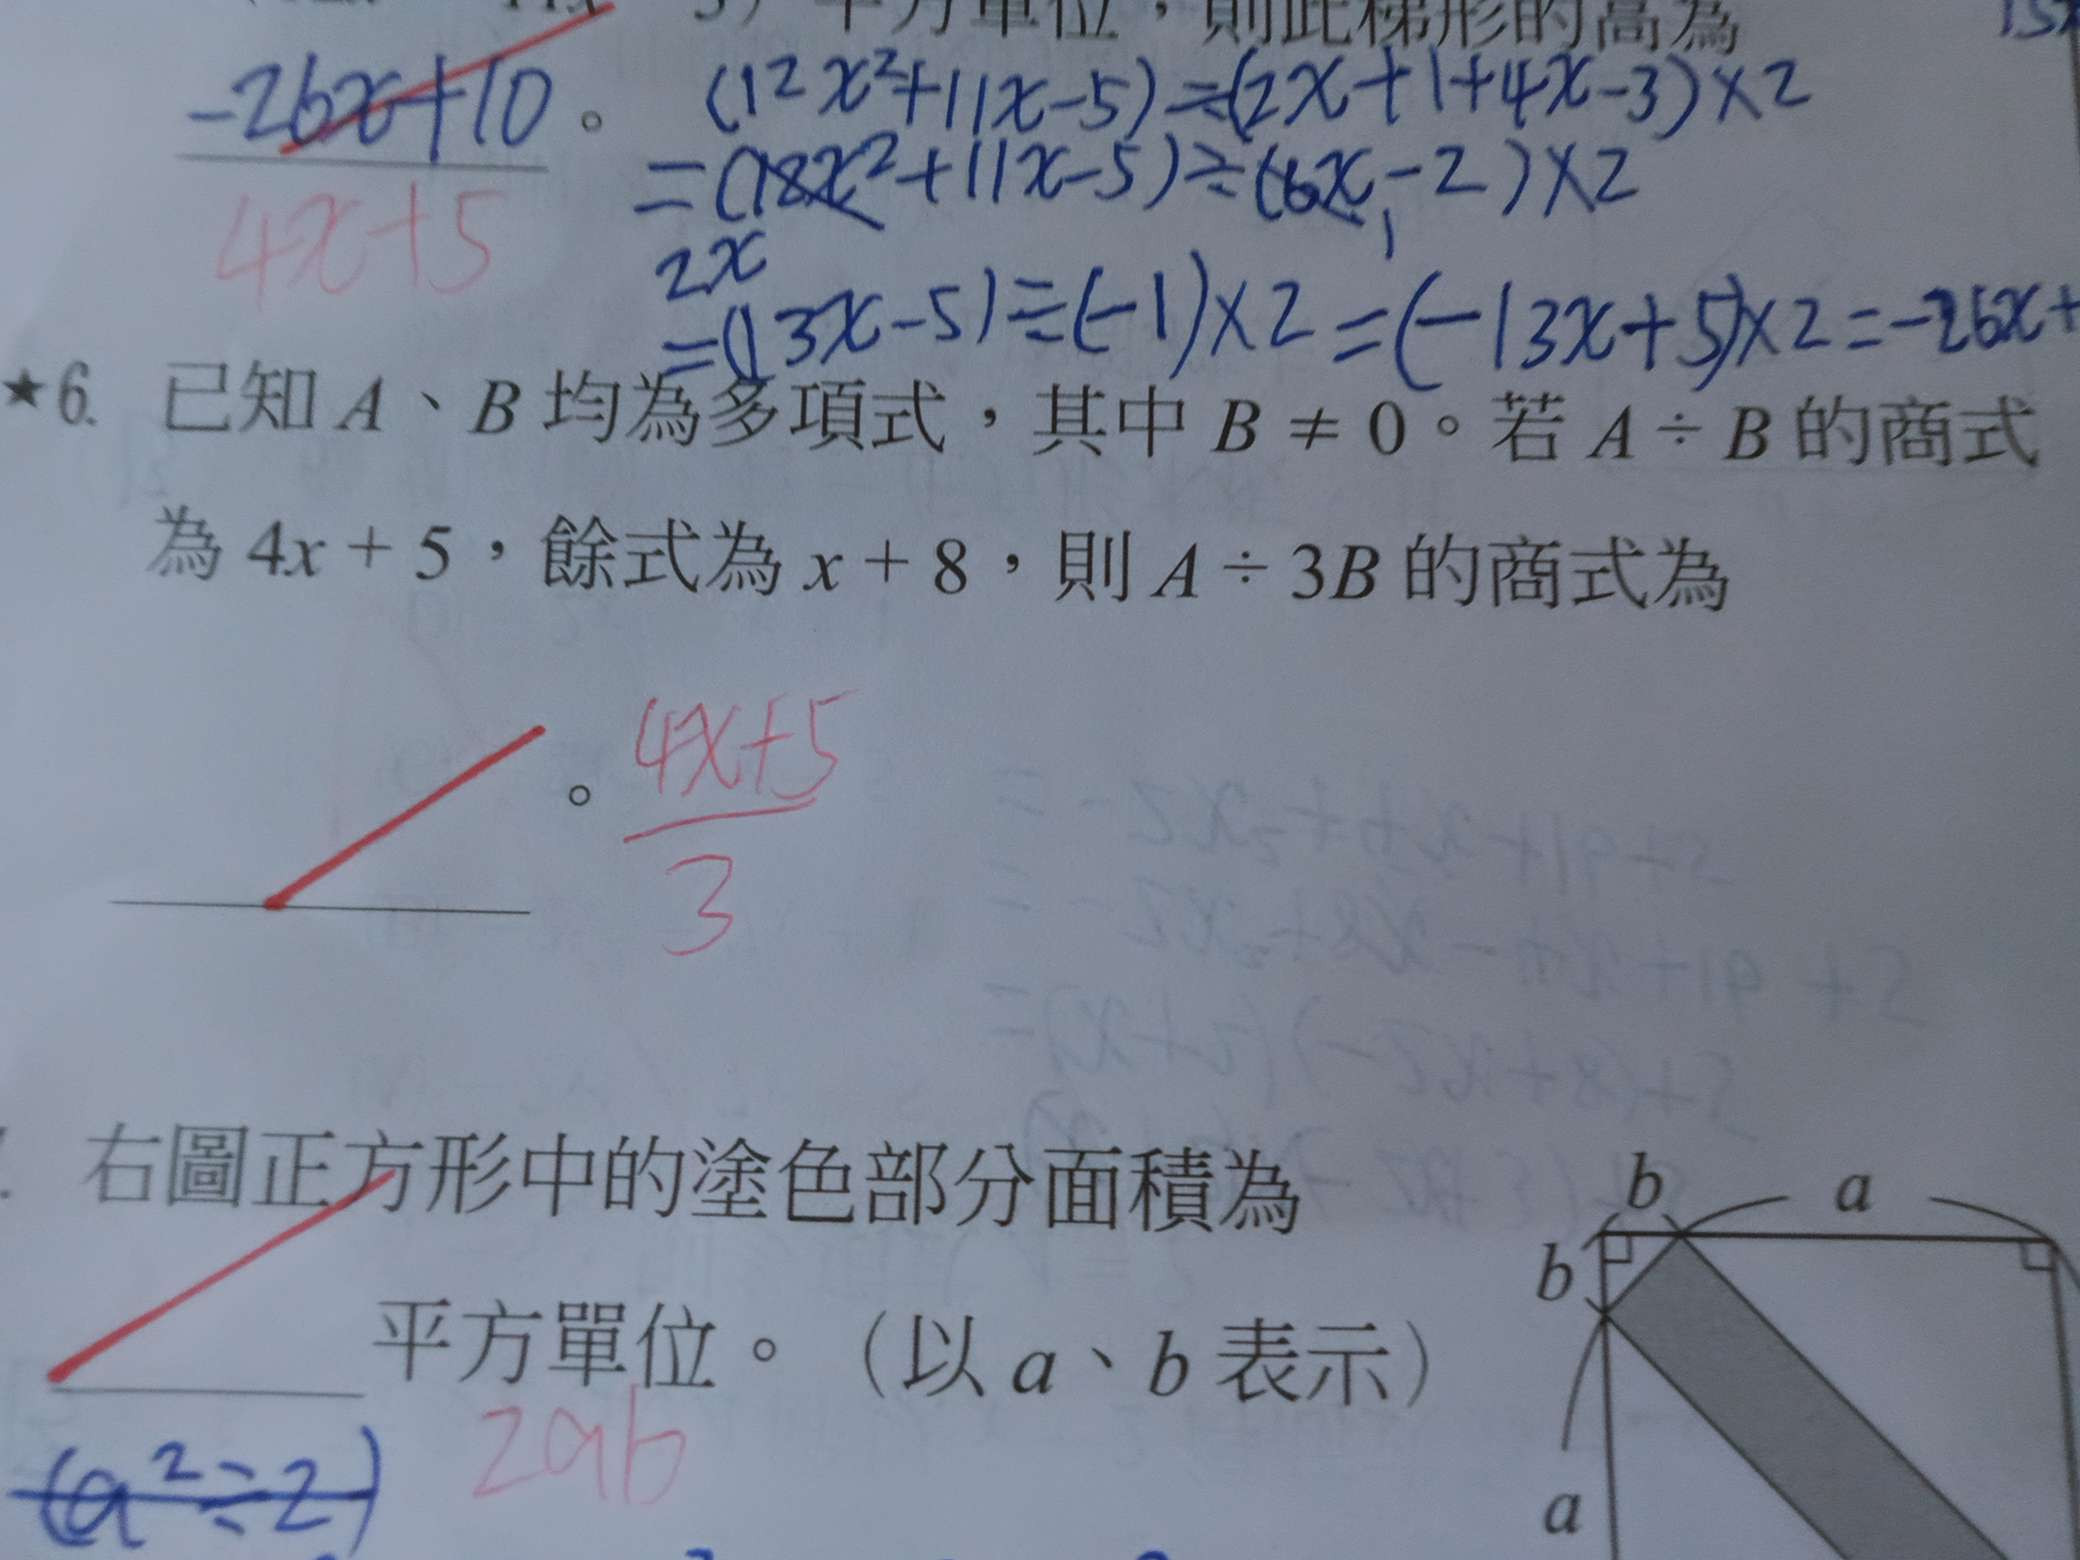 平方單位，則此梯形的高為
-26x+10。
(12x²+11x-5)÷(2x+1+4x-3)×2
=(18x²+11x-5)÷(6x-2)×2
4x+5
2x
1
=(13x-5)÷(-1)×2=(-13x+5)×2=-26x+
★6. 已知 A、B 均為多項式，其中 B ≠ 0。若 A ÷ B 的商式
為 4x + 5，餘式為 x + 8，則 A ÷ 3B 的商式為
。
4x+5
3
右圖正方形中的塗色部分面積為
平方單位。（以 a、b 表示）
2ab
(a²÷2)
b
a
b
a